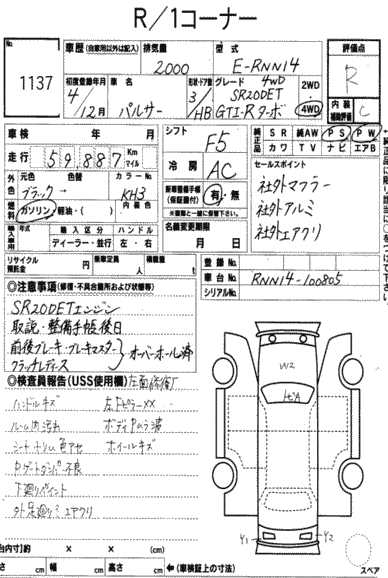 R/1コーナー
No. 1137
車歴 (自家用以外は記入) 排気量 2000 型式 E-RNN14 評価点 R
初度登録年月 4/12月 車名 パルサー 形状・ドア数 3/HB グレード 4WD SR20DET GTI-Rターボ 2WD 4WD 内装補助評価 C
車検 年 月 シフト F5 純正品 SR 純AW PS PW
カワ TV ナビ エアB
走行 59,887 Km マイル 冷房 AC
セールスポイント
社外マフラー
社外アルミ
社外エアクリ
外色 元色 色替 カラーNo. ブラック→ KH3 内装色
燃料 ガソリン・軽油・( )
新車整備手帳(保証書付) 有・無
※車両と一緒に保管下さい。
輸入車用 年式 輸入区分 ハンドル
ディーラー・並行 左・右
名義変更期限 月 日
リサイクル預託金 円 乗車定員 人 積載量 t
登録No.
車台No. RNN14-100805
シリアルNo.
◎注意事項(修復・不具合箇所および状態等)
SR20DETエンジン
取説・整備手帳後日
前後ブレーキ・ブレーキマスター
オーバーホール済
◎検査員報告(USS使用欄)
ハンドルキズ
ルーム内汚れ ボディムラ
シート トリム色アセ ホイールキズ
エアクリ
W2
Y1 Y2
荷台内寸)約 × × (cm)
長さ cm 幅 cm 高さ cm ← (車検証上の寸法)
スペア